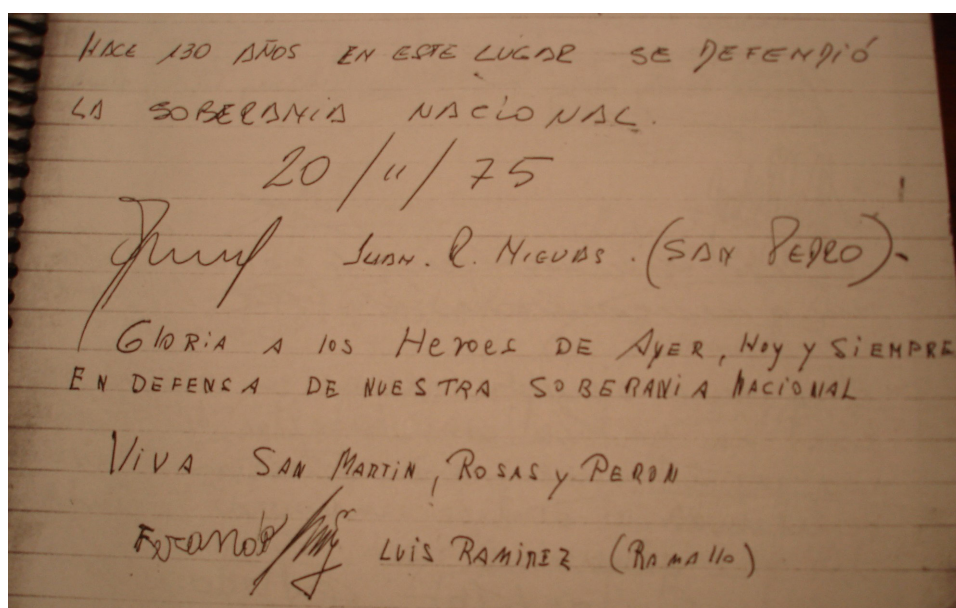 HACE 130 AÑOS EN ESTE LUGAR SE DEFENDIÓ
LA SOBERANIA NACIONAL.
20/11/75
JUAN. R. (SAN PEDRO).
GlORiA A los HeroeS DE AyER, Hoy y SiEMPRE
EN DEFENSA DE NUESTRA SOBERANIA NACiONAL
ViVA SAN MARTiN, ROSAS y PERON
LUiS RAMiREZ (RAMAllo)